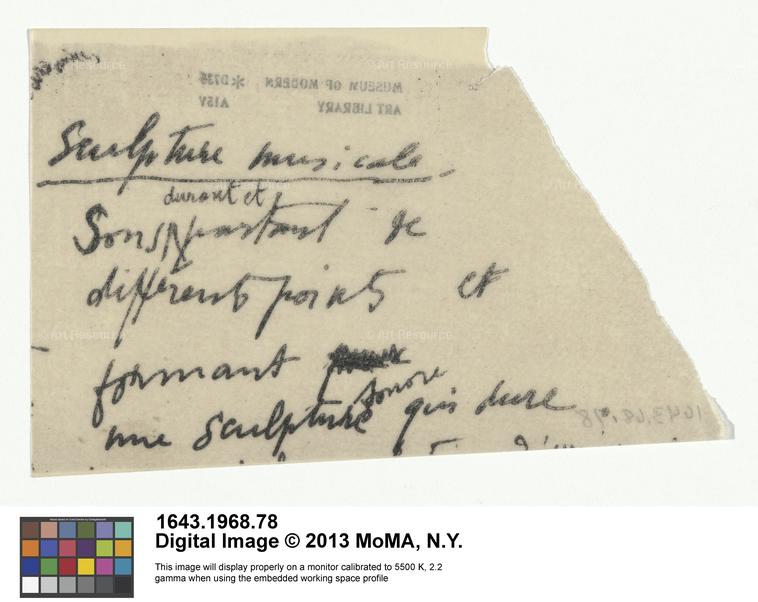 MUSEUM OF MODERN
ART LIBRARY
*D736
A15V
Sculpture musicale
durant et
Sons partant de
différents points et
formant
sonore
une sculpture qui dure
1643.68.78
© Art Resource
© Art Resource
© Art Resource
© Art Resource
1643.1968.78
Digital Image © 2013 MoMA, N.Y.
This image will display properly on a monitor calibrated to 5500 K, 2.2
gamma when using the embedded working space profile